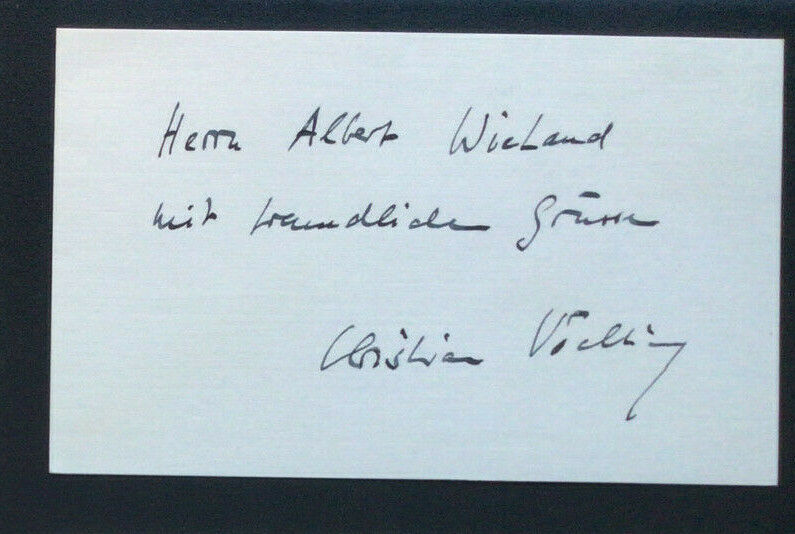 Herrn Albert Wieland
mit freundlichen Grüssen
Christian Vöchting